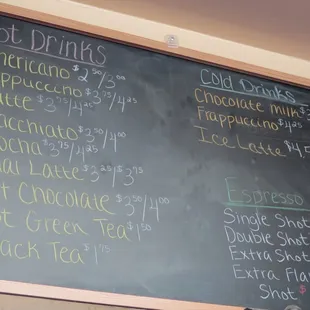 ot Drinks
mericano $2.50/3.00
appuccino $3.75/4.25
atte $3.75/4.25
acchiato $3.50/4.00
ocha $3.75/4.25
hai Latte $3.25/$3.75
t Chocolate $3.50/4.00
ot Green Tea $1.50
ack Tea $1.75
Cold Drinks
Chocolate milk $
Frappuccino $4.25
Ice Latte $4.
Espresso
Single Shot
Double Shot
Extra Shot
Extra Fla
Shot $